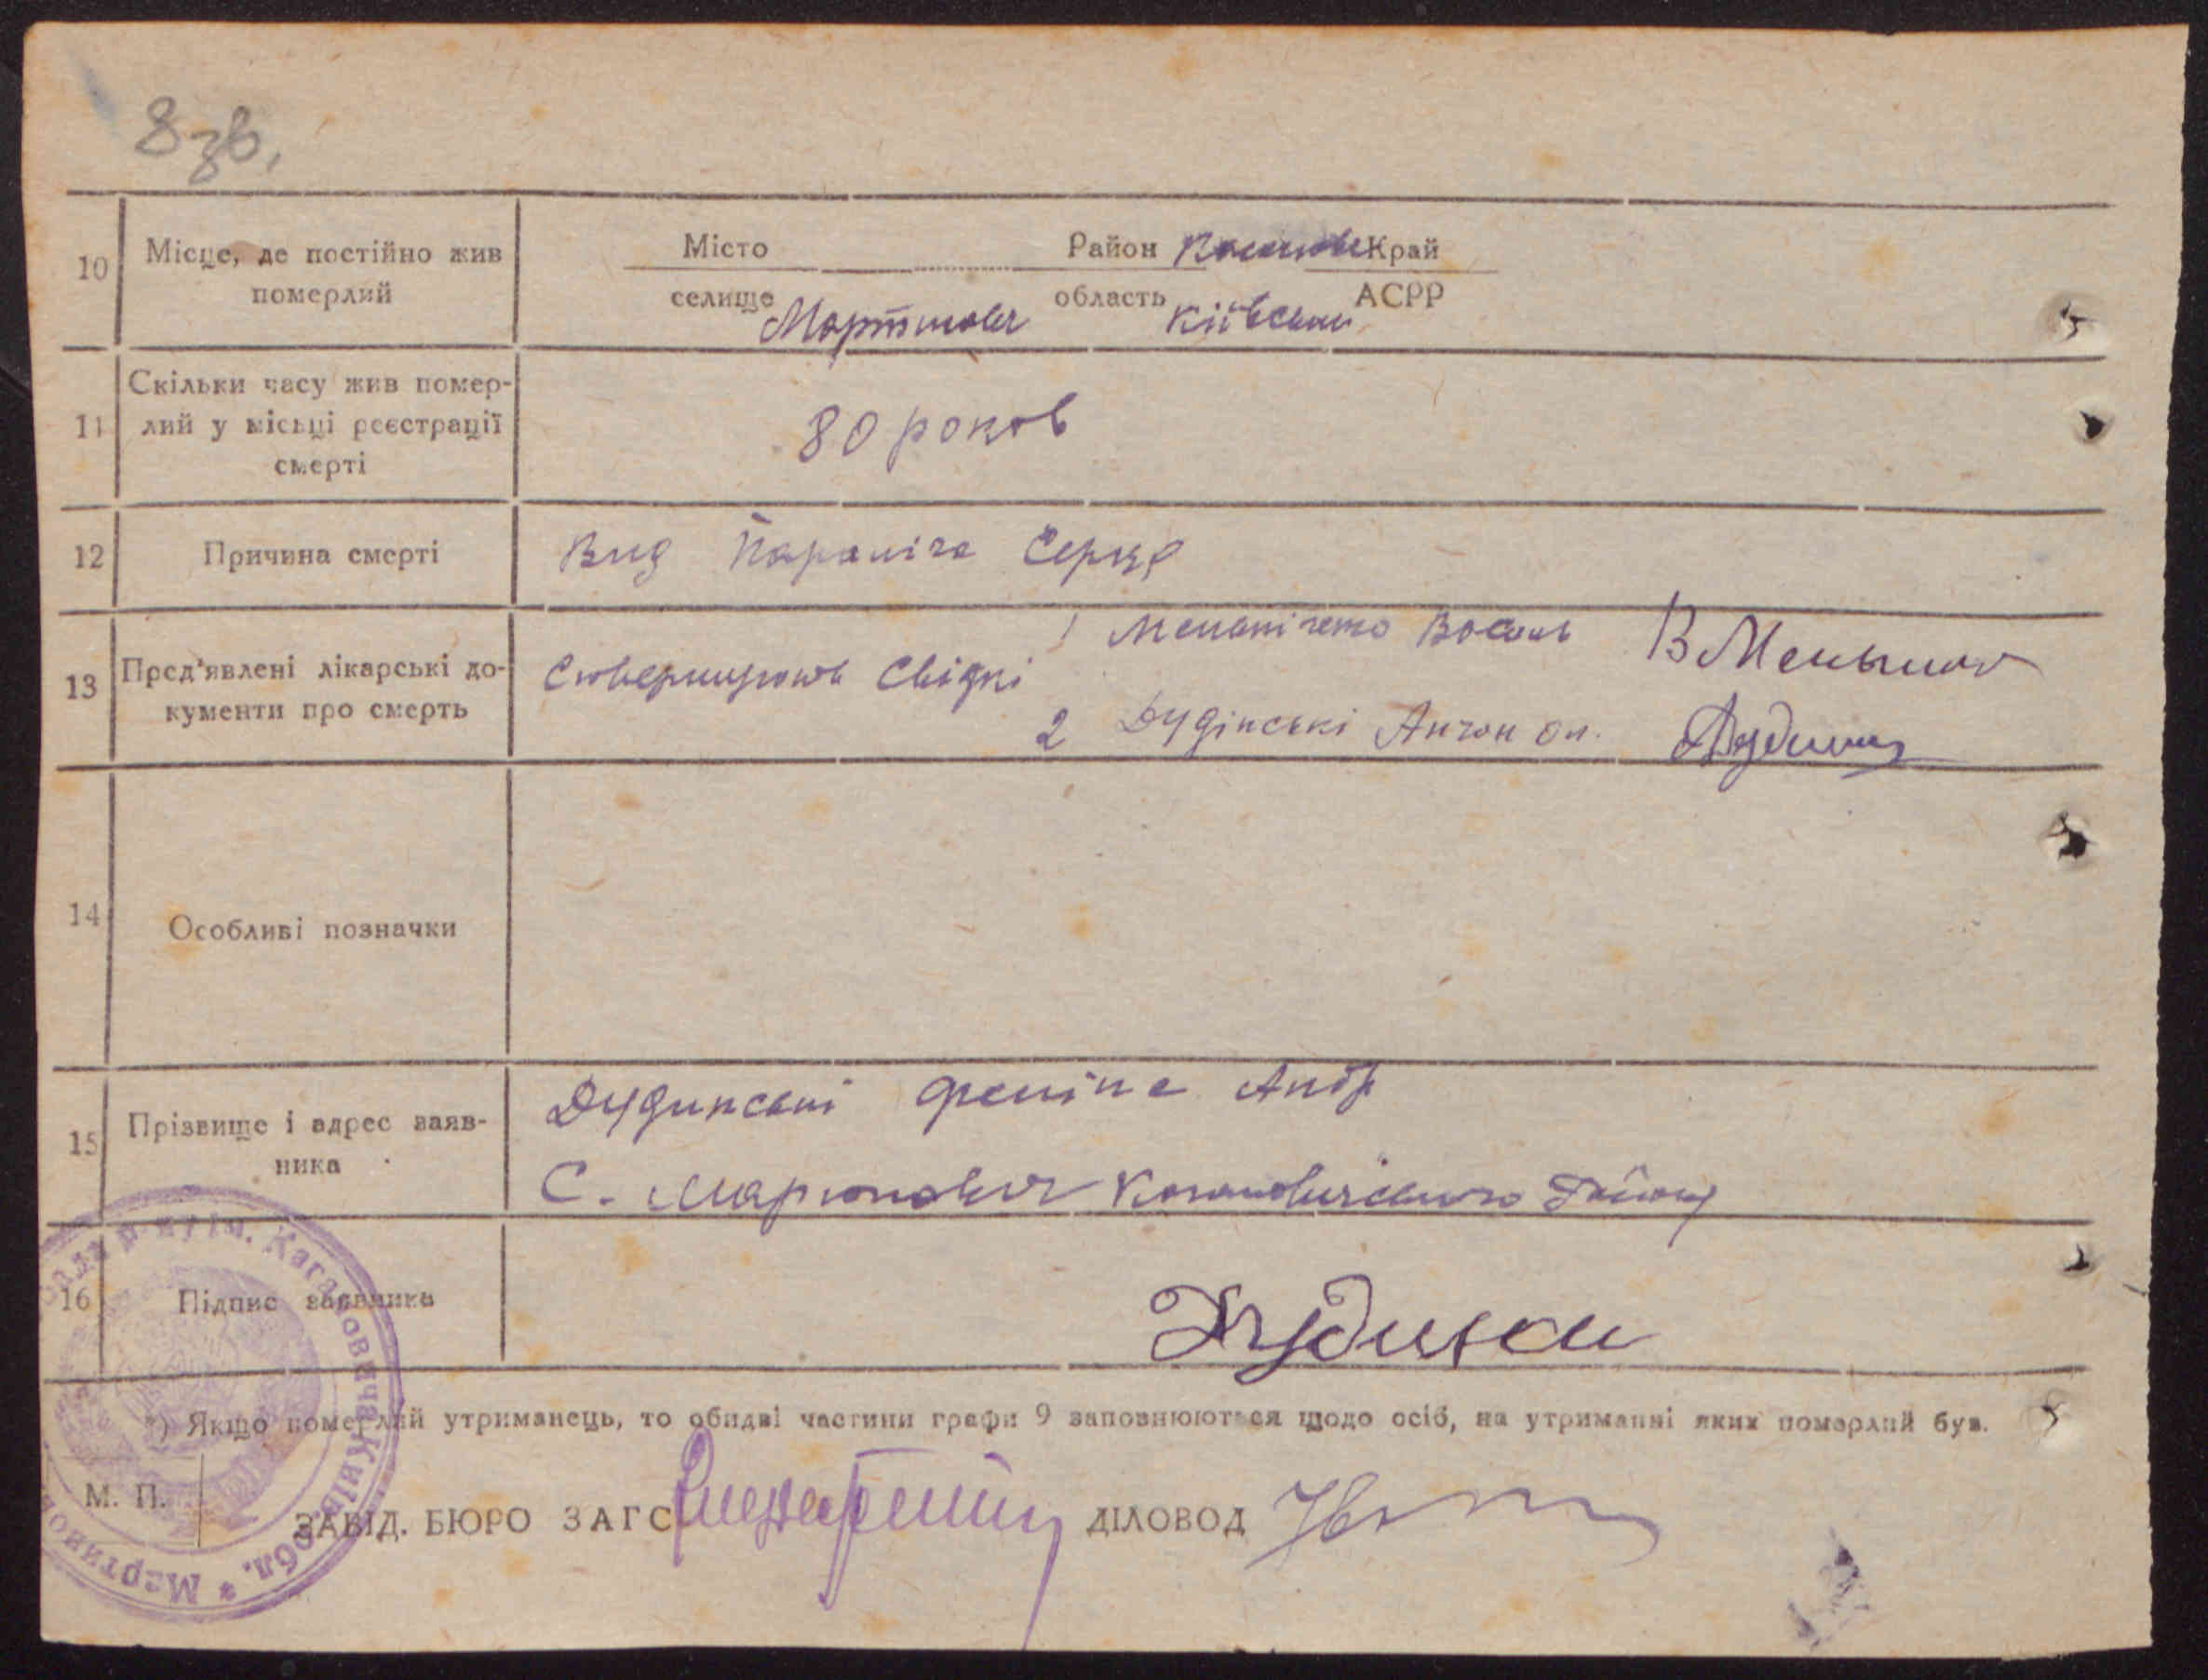 8 зв.
10 Місце, де постійно жив померлий
Місто Район Край
селище область Київська АСРР
11 Скільки часу жив помер-
лий у місьці реєстрації
смерті
80 роков
12 Причина смерті
Вид Параліча Серця
13 Пред'явлені лікарські до-
кументи про смерть
Свідкі
1 Василь В Меньшов
2 Дудінські Антон Ол.
14 Особливі позначки
15 Прізвище і адрес заяв-
ника
Дудинські Андр
С. Мартинович Кагановичського району
16 Підпис заявника
*) Якщо померлий утриманець, то обидві частини графи 9 заповнюються щодо осіб, на утриманні яких померлий був.
М. П.
ЗАВІД. БЮРО ЗАГС ДІЛОВОД
Кагановича Київ обл. * Мартинов